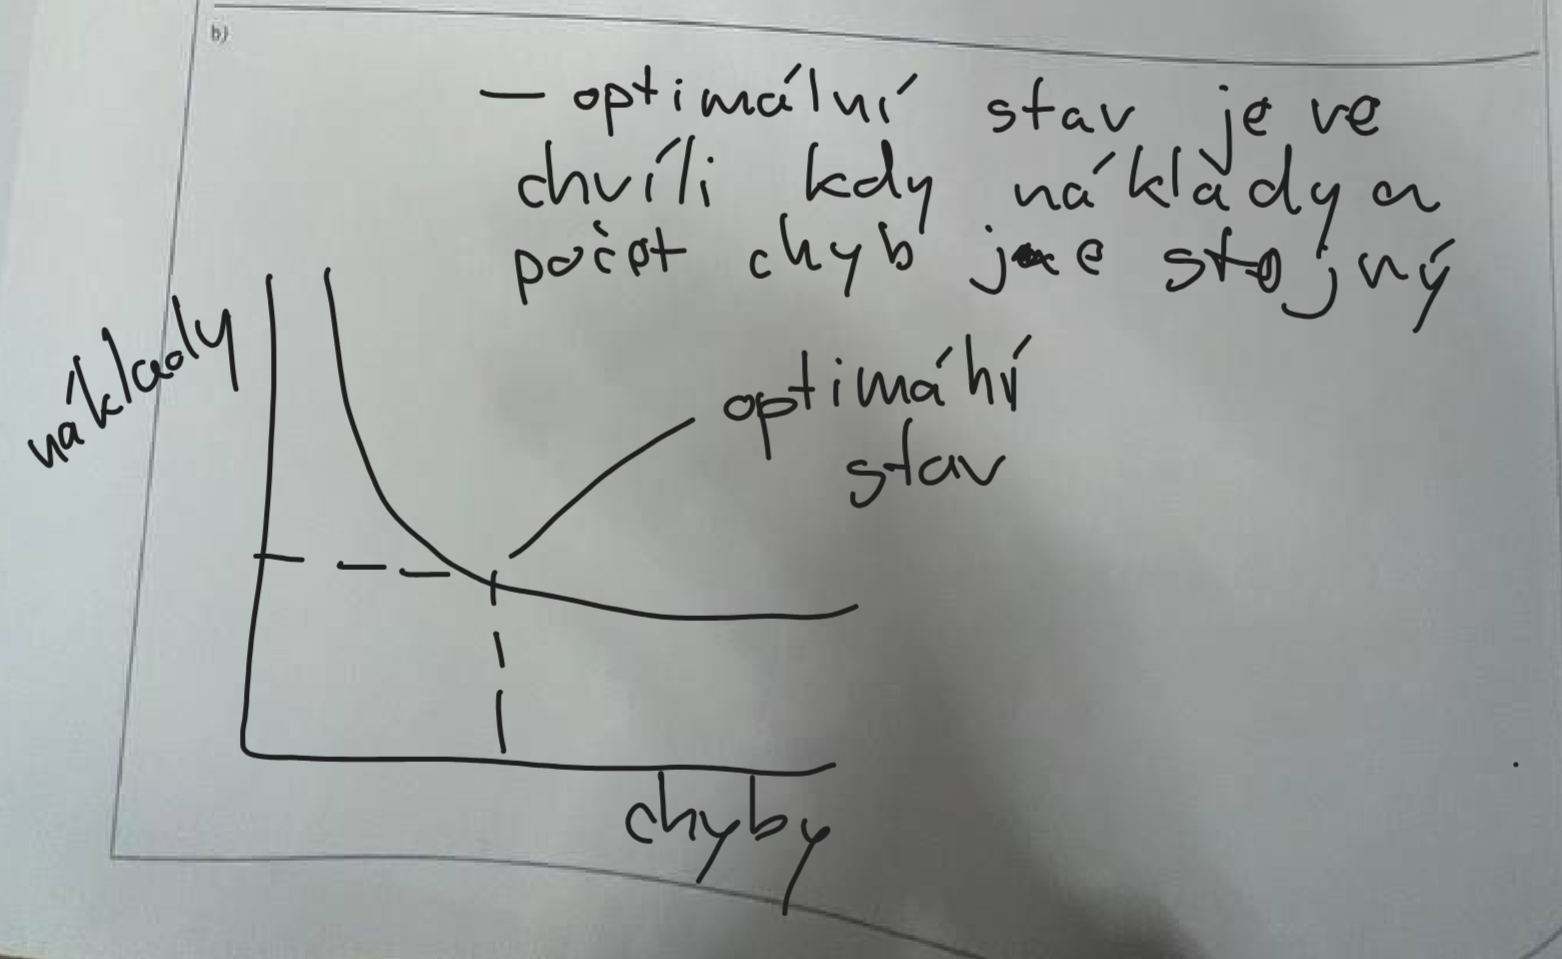 b)
– optimální stav je ve
chvíli kdy náklady a
počet chyb je stojný
náklady
optimální
stav
chyby